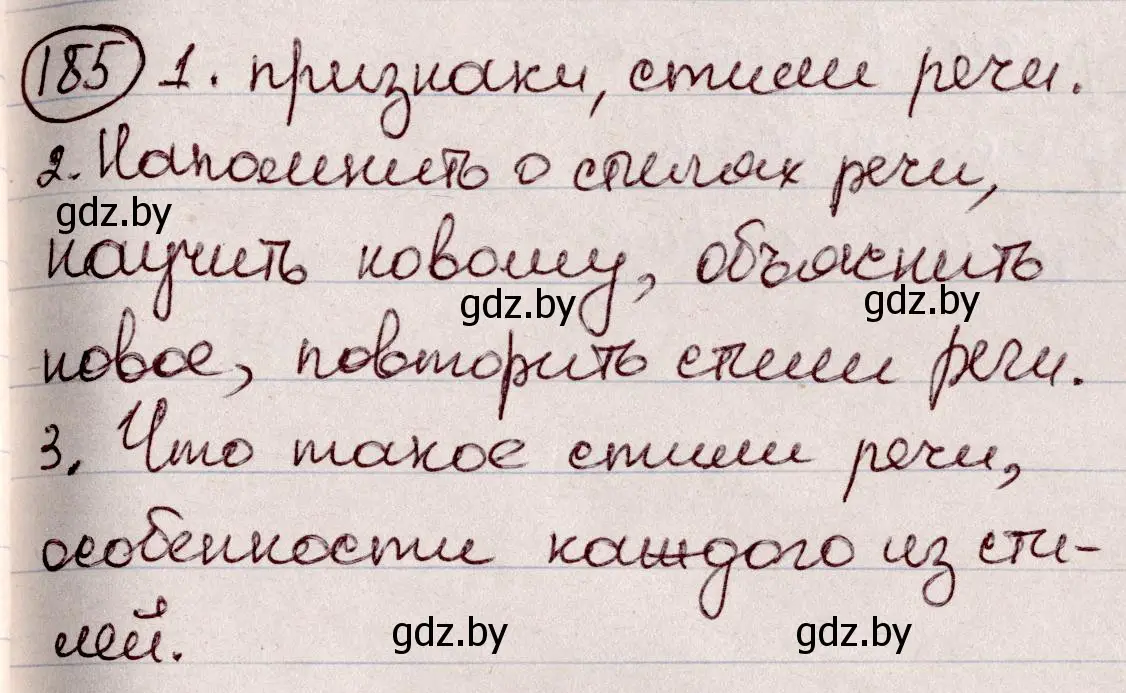 185 1. признаки, стили речи.
2. Напомнить о стилях речи,
gdz.by
научить новому, объяснить
gdz.by gdz.by
новое, повторить стили речи.
3. Что такое стили речи,
особенности каждого из сти-
лей.
gdz.by gdz.by